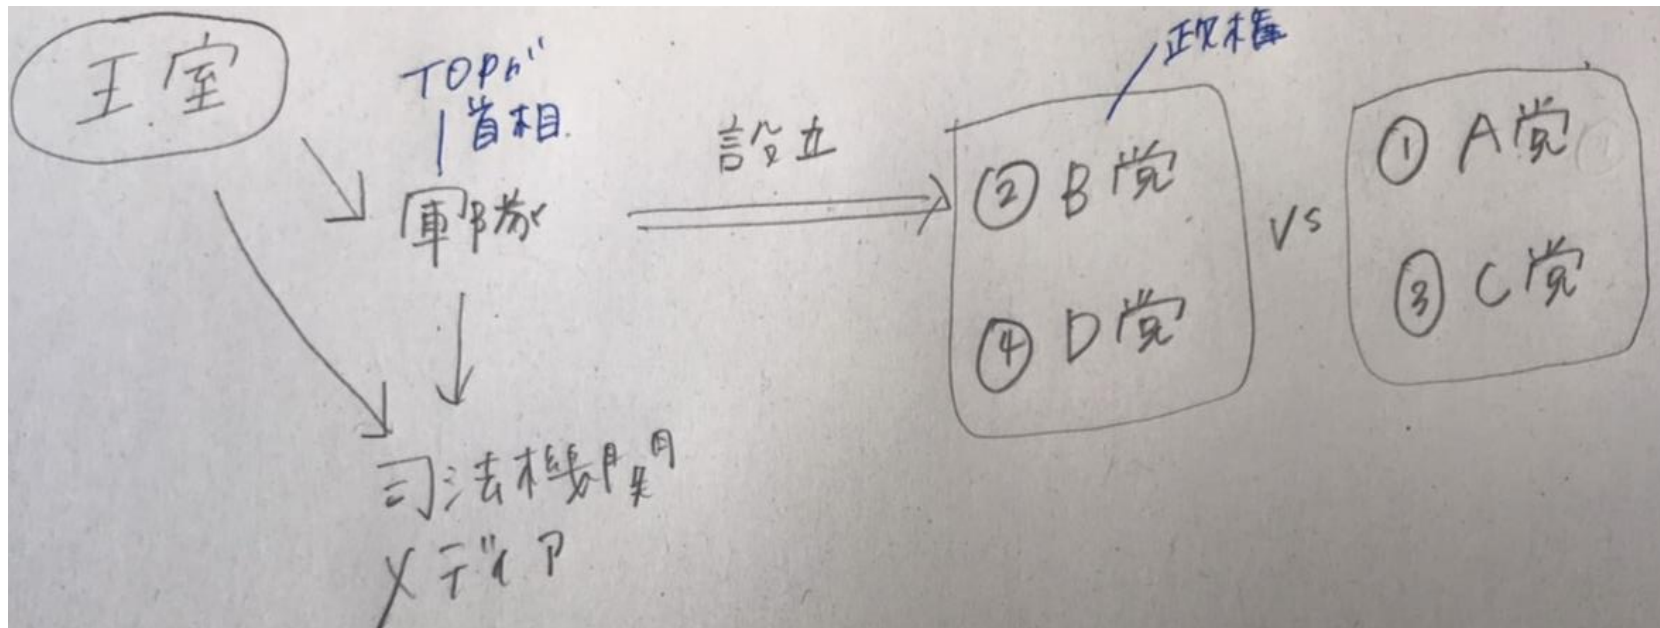 王室
TOPが
首相
軍隊
司法機関
メディア
設立
政権
② B党
④ D党
vs
① A党
③ C党